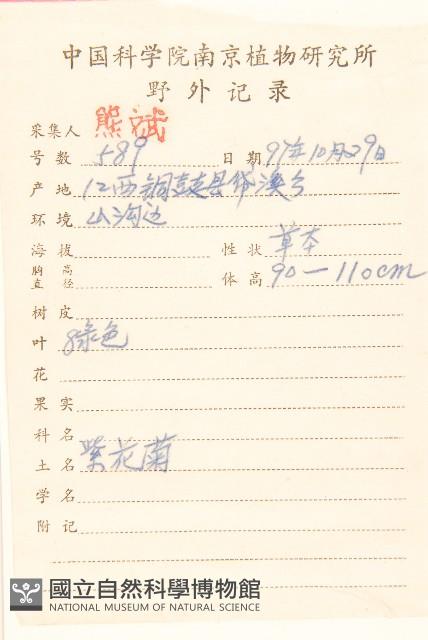 中国科学院南京植物研究所
野外记录
采集人 熊斌
号数 589 日期 97年10月29日
产地 江西铜鼓县
环境 山沟边
海拔 性状 草本
胸高直径 体高 90-110cm
树皮
叶 绿色
花
果实
科名
土名 紫花菊
学名
附记
國立自然科學博物館
NATIONAL MUSEUM OF NATURAL SCIENCE